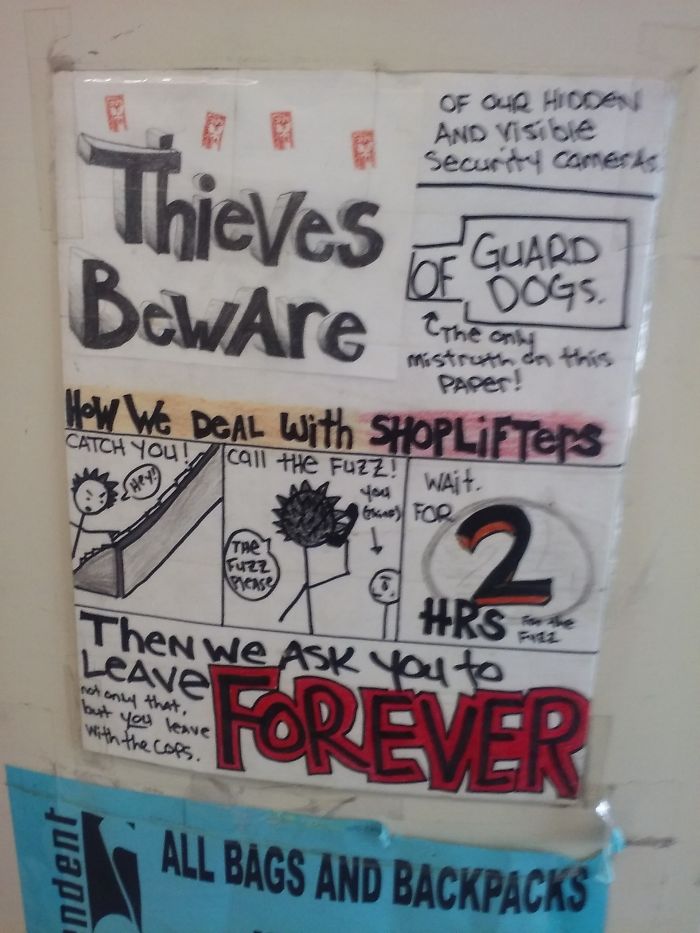 Thieves
Beware
OF OUR HIDDEN
AND Visible
Security cameras.
OF GUARD
DOGS.
The only
mistruth on this
PAPER!
How We DEAL With SHOPLIFTERS
CATCH YOU!
Hey!
Call THE FUZZ!
you
THE
FUZZ
PLEASE
WAit.
FOR
2
HRS For the
Fuzz
Then we ASK you to
LEAVE
FOREVER
not only that,
but you leave
with the cops.
ndent
ALL BAGS AND BACKPACKS